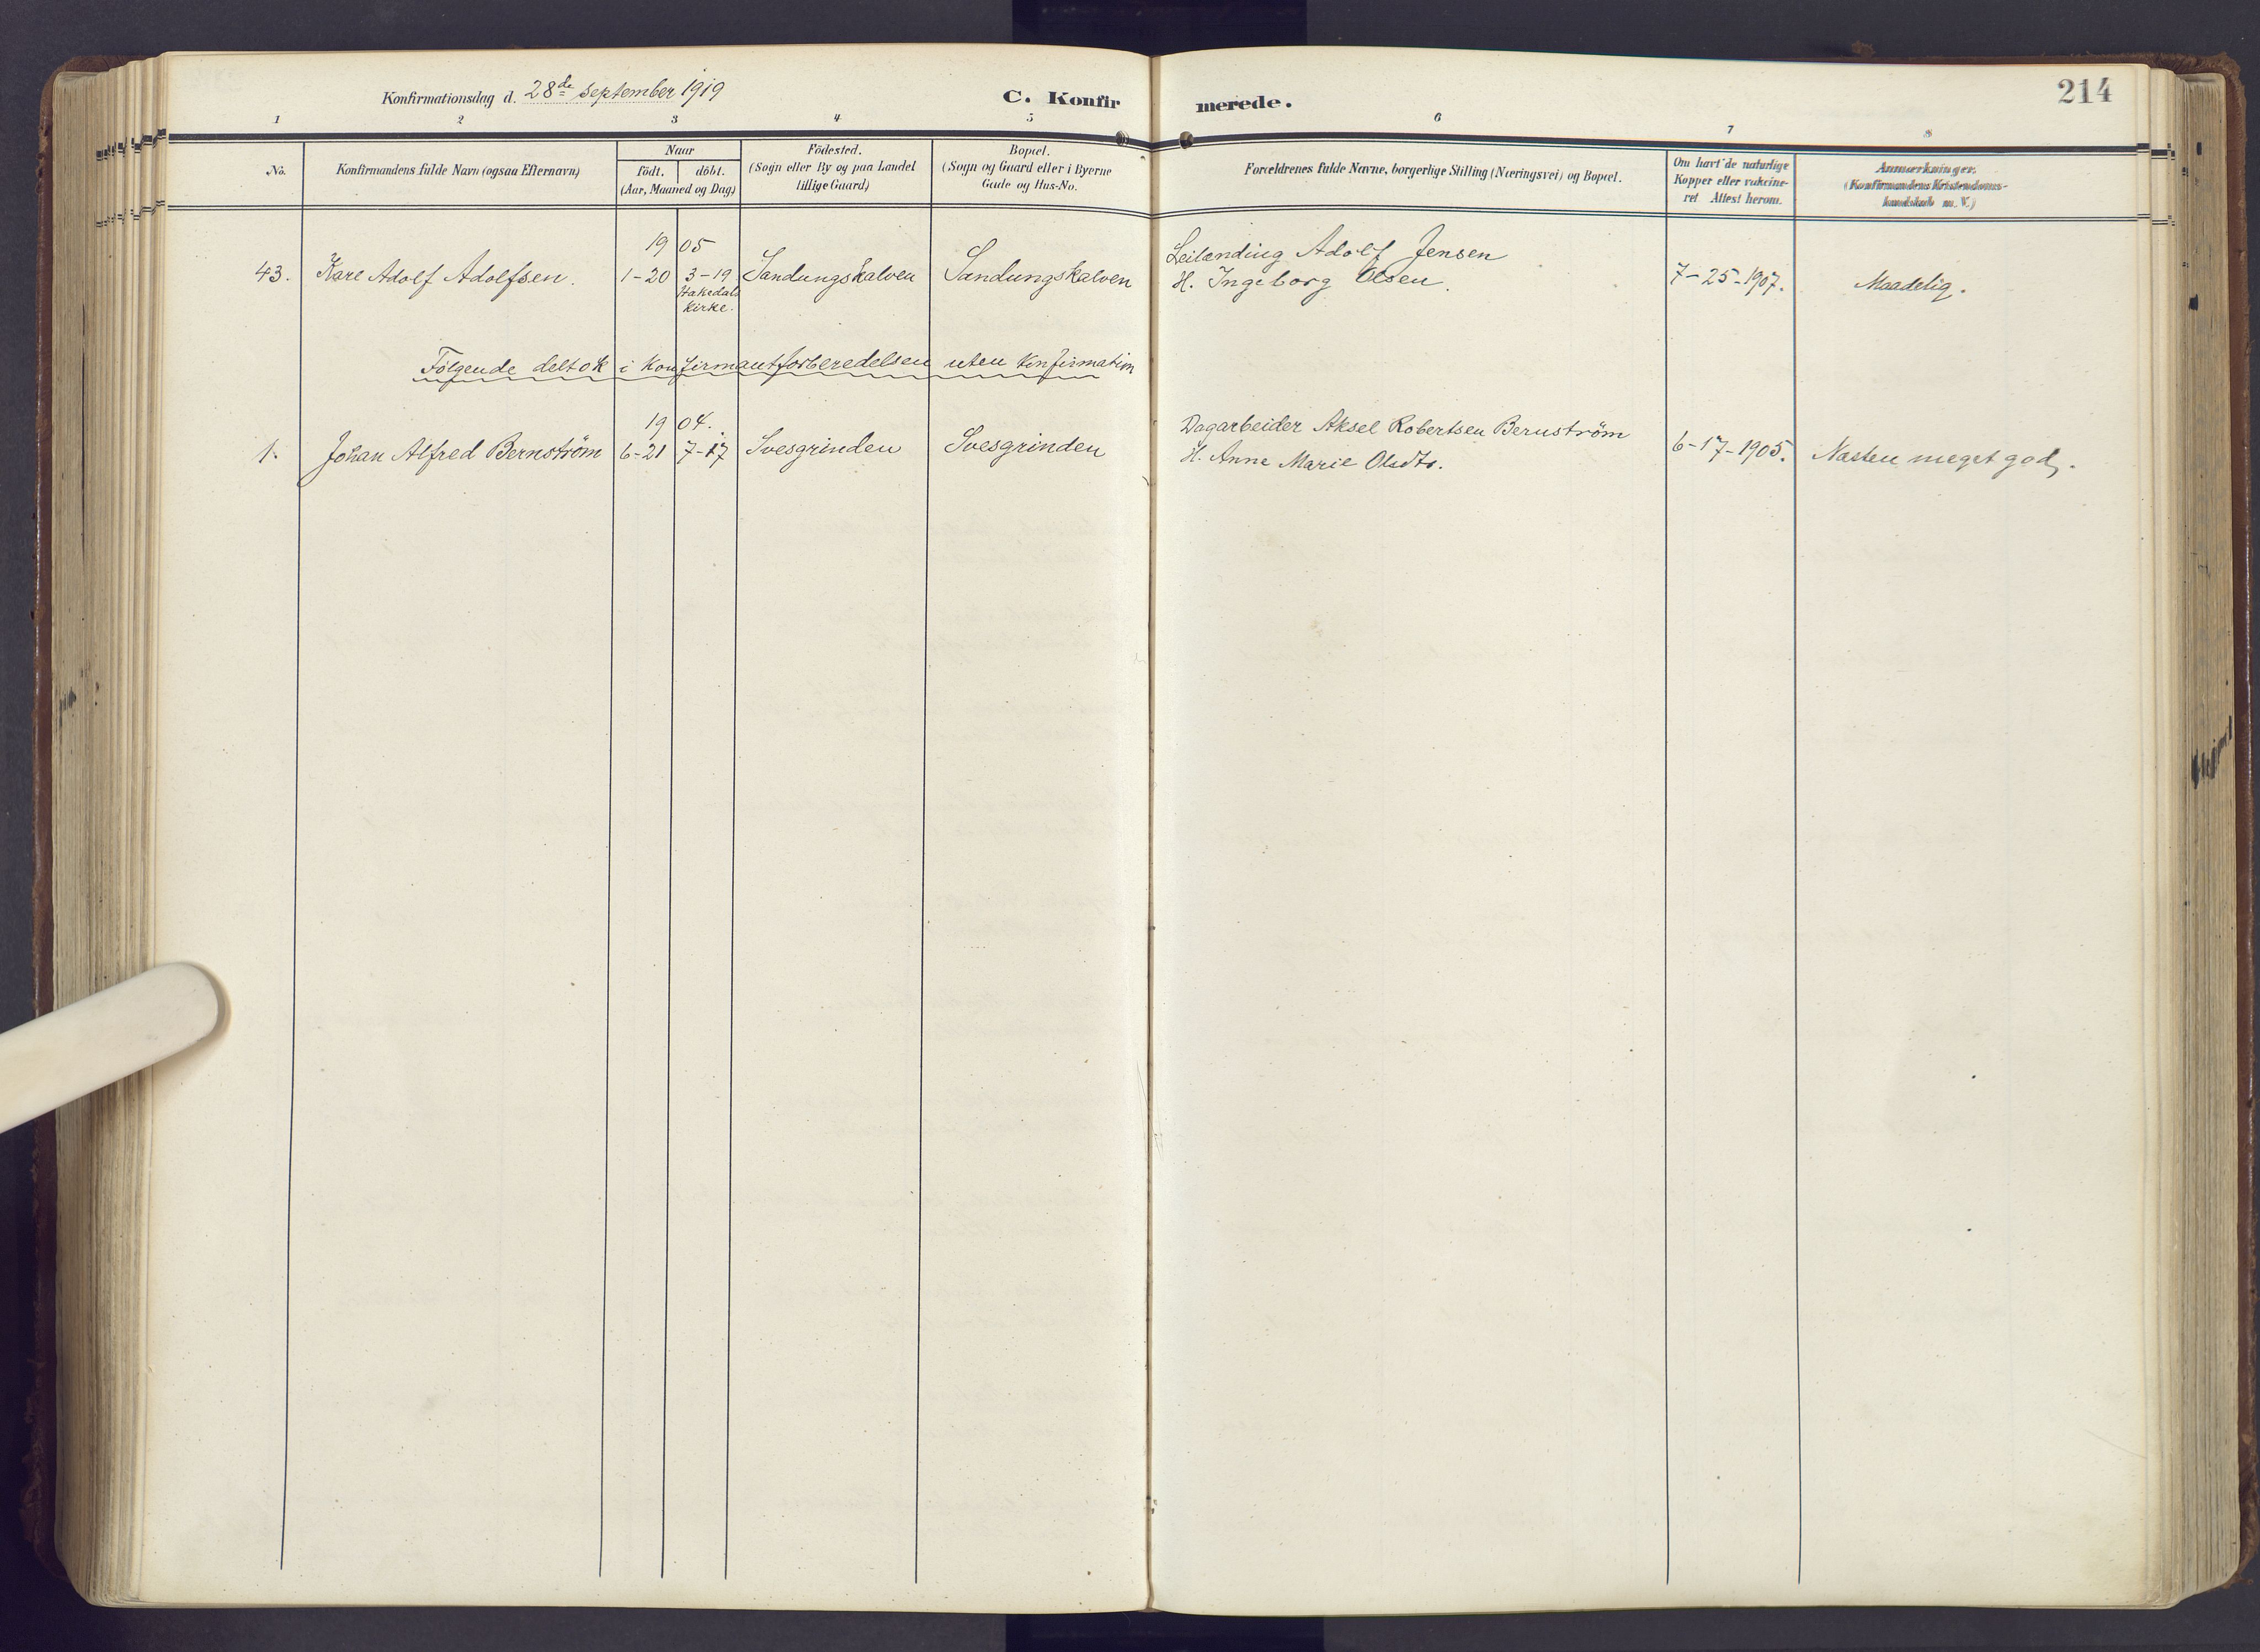 Konfirmationsdag d. 28de September 1919
C. Konfirmerede.
214
1 2 3 4 5 6 7 8
No.
Konfirmandens fulde Navn (ogsaa Efternavn)
Naar
födt. döbt.
(Aar, Maaned og Dag)
Födested.
(Sogn eller By og paa Landet
tillige Gaard)
Bopæl.
(Sogn og Gaard eller i Byerne
Gade og Hus-No.
Forældrenes fulde Navne, borgerlige Stilling (Næringsvei) og Bopæl.
Om havt de naturlige
Kopper eller vakcine-
ret Attest herom.
Anmærkninger.
(Konfirmandens Kristendoms-
kundskab m. V.)
1905
43. Kåre Adolf Adolfsen. 1-20 3-19 Sandungskalven Sandungskalven
Hakedals
Kirke.
Leilending Adolf Jensen
H. Ingeborg Olsen.
7-25-1907.
Maadelig.
Følgende deltok i konfirmantforberedelsen uten konfirmation
1904.
1. Johan Alfred Bernström 6-21 7-17 Svesgrinden Svesgrinden
Dagarbeider Aksel Robertsen Bernström
H. Anne Marie Olsdtr.
6-17-1905.
Næsten meget god.